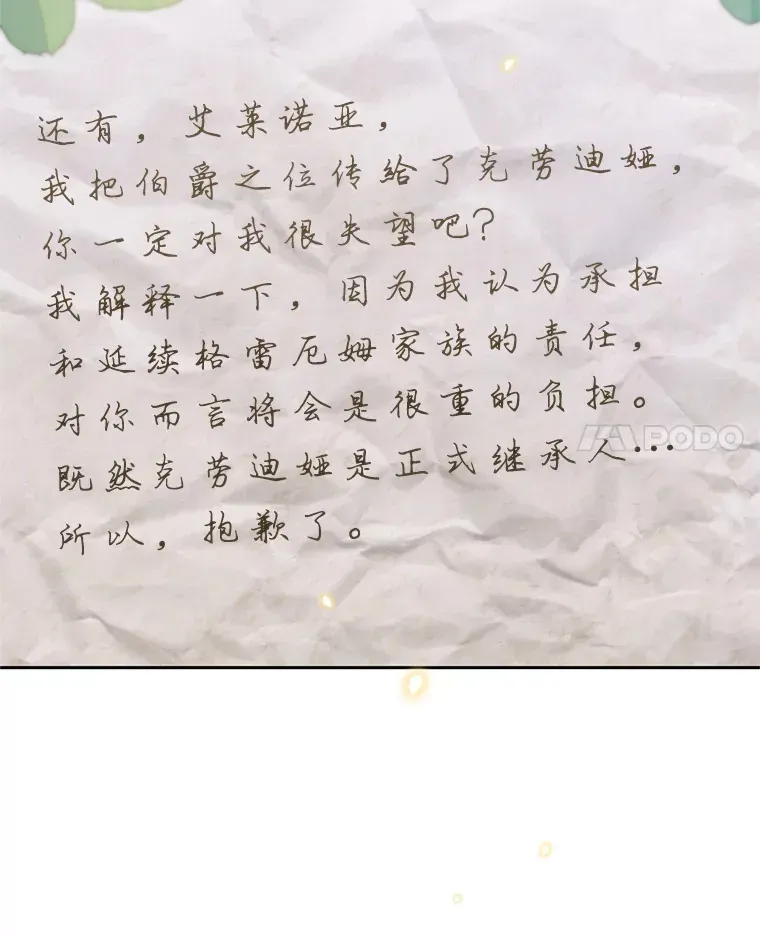 还有，艾莱诺亚，
我把伯爵之位传给了克劳迪娅，
你一定对我很失望吧？
我解释一下，因为我认为承担
和延续格雷厄姆家族的责任，
对你而言将会是很重的负担。
既然克劳迪娅是正式继承人…
所以，抱歉了。
PODO